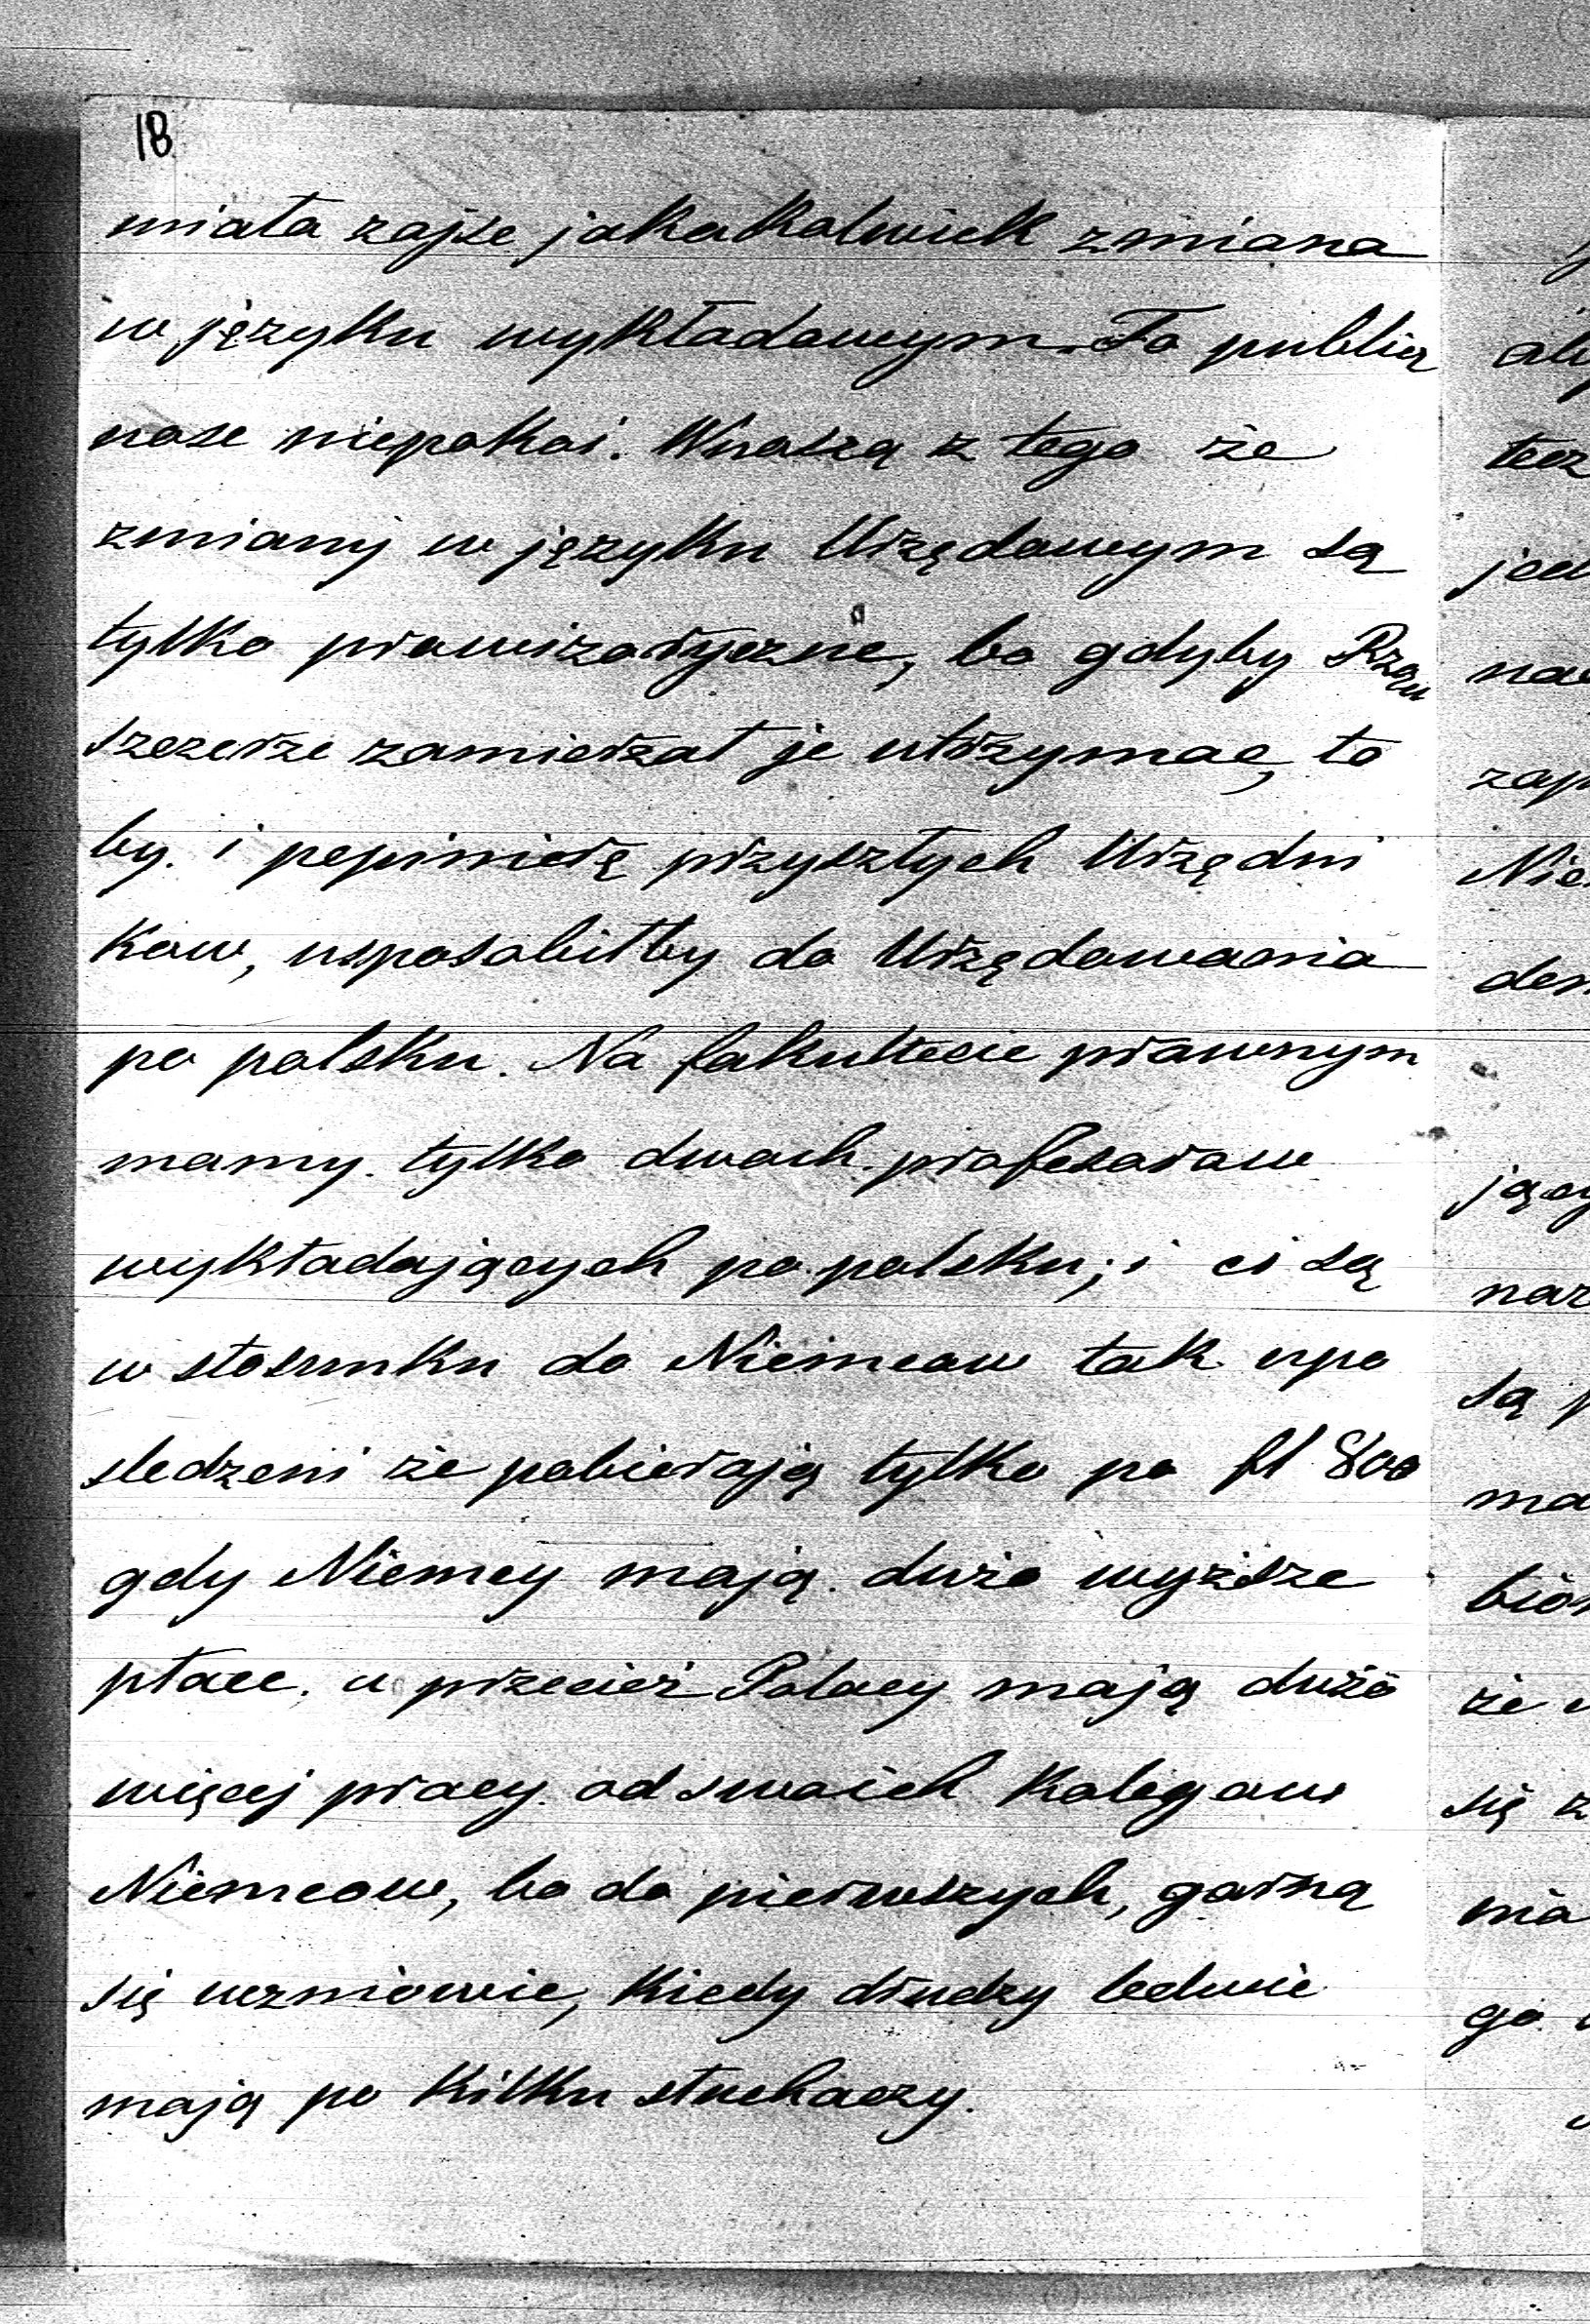 18
miała zajse jakakolwiek zmiana
w języku wykładowym. To publicz
nosc niepokoi. Wnoszą z tego że
zmiany w języku Urzędowym są
tylko prowizoryczne, bo gdyby Rząd
szczerze zamierzał je utrzymac, to
by. i pepinierę przyszłych Urzędni
kow, usposobiłby do Urzędowania
po polsku. Na fakultecie prawnym
mamy. tylko dwoch. profesorow
wykładających po polsku; i ci są
w stosunku do Niemcow tak upo
sledzeni że pobierają tylko po fl 800
gdy Niemcy mają. dużo wyższe
płace. a przecież Polacy mają dużo
więcej pracy od swoich Kolegow
Niemcow, bo do pierwszych, garną
się uczniowie, Kiedy drudzy ledwie
mają po Kilku słuchaczy.